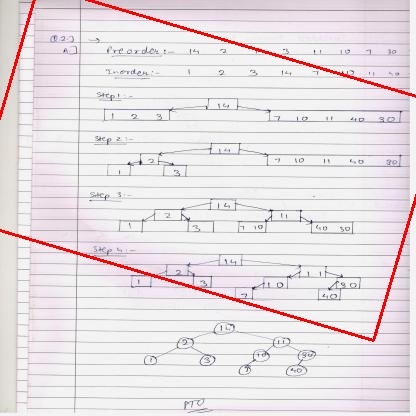 Q.2.) →
A.] Preorder:- 14 2 3 11 10 7 30
Inorder:- 1 2 3 14 7 11 40
Step 1:-
14
1 2 3 7 10 11 40 30
Step 2:-
14
2 7 10 11 40 30
1 3
Step 3:-
14
2 11
1 3 7 10 40 30
Step 4:-
14
2 11
1 3 10 30
7 40
14
2 11
1 3 10 30
7 40
PTO